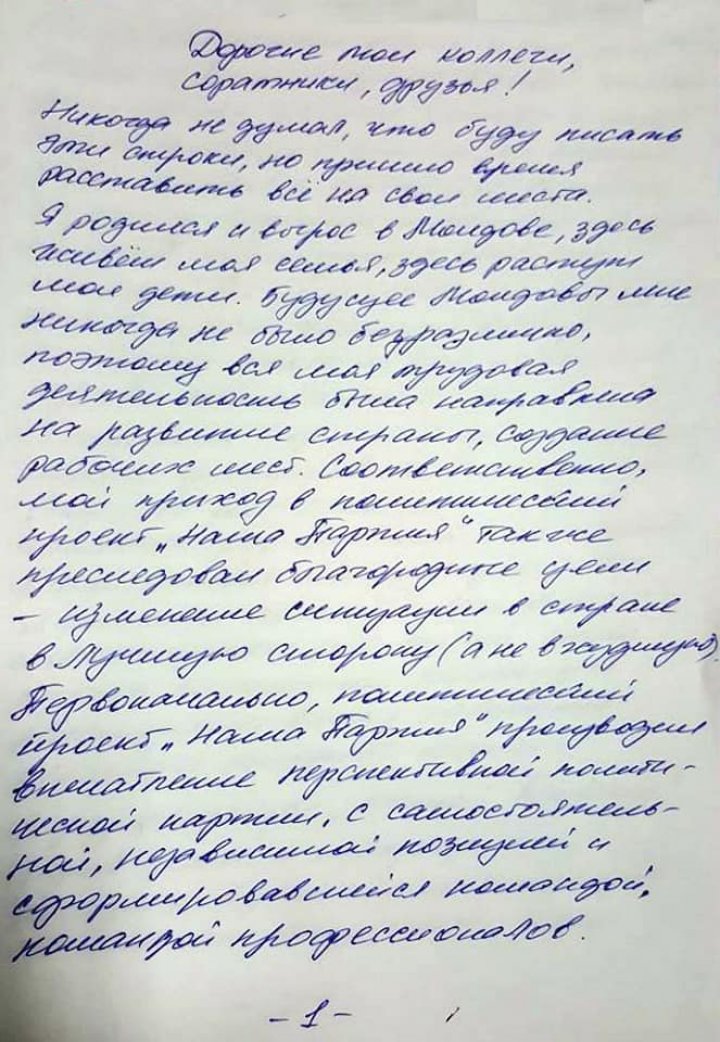 Дорогие мои коллеги,
соратники, друзья!
Никогда не думал, что буду писать
эти строки, но пришло время
расставить всё на свои места.
Я родился и вырос в Молдове, здесь
живёт моя семья, здесь растут
мои дети. Будущее Молдовы мне
никогда не было безразлично,
поэтому вся моя трудовая
деятельность была направлена
на развитие страны, создание
рабочих мест. Соответственно,
мой приход в политический
проект „Наша Партия" также
преследовал благородные цели
– изменение ситуации в стране
в лучшую сторону (а не в худшую).
Первоначально, политический
проект „Наша Партия" производил
впечатление перспективной полити-
ческой партии, с самостоятель-
ной, независимой позицией и
сформировавшейся командой,
командой профессионалов.
-1-